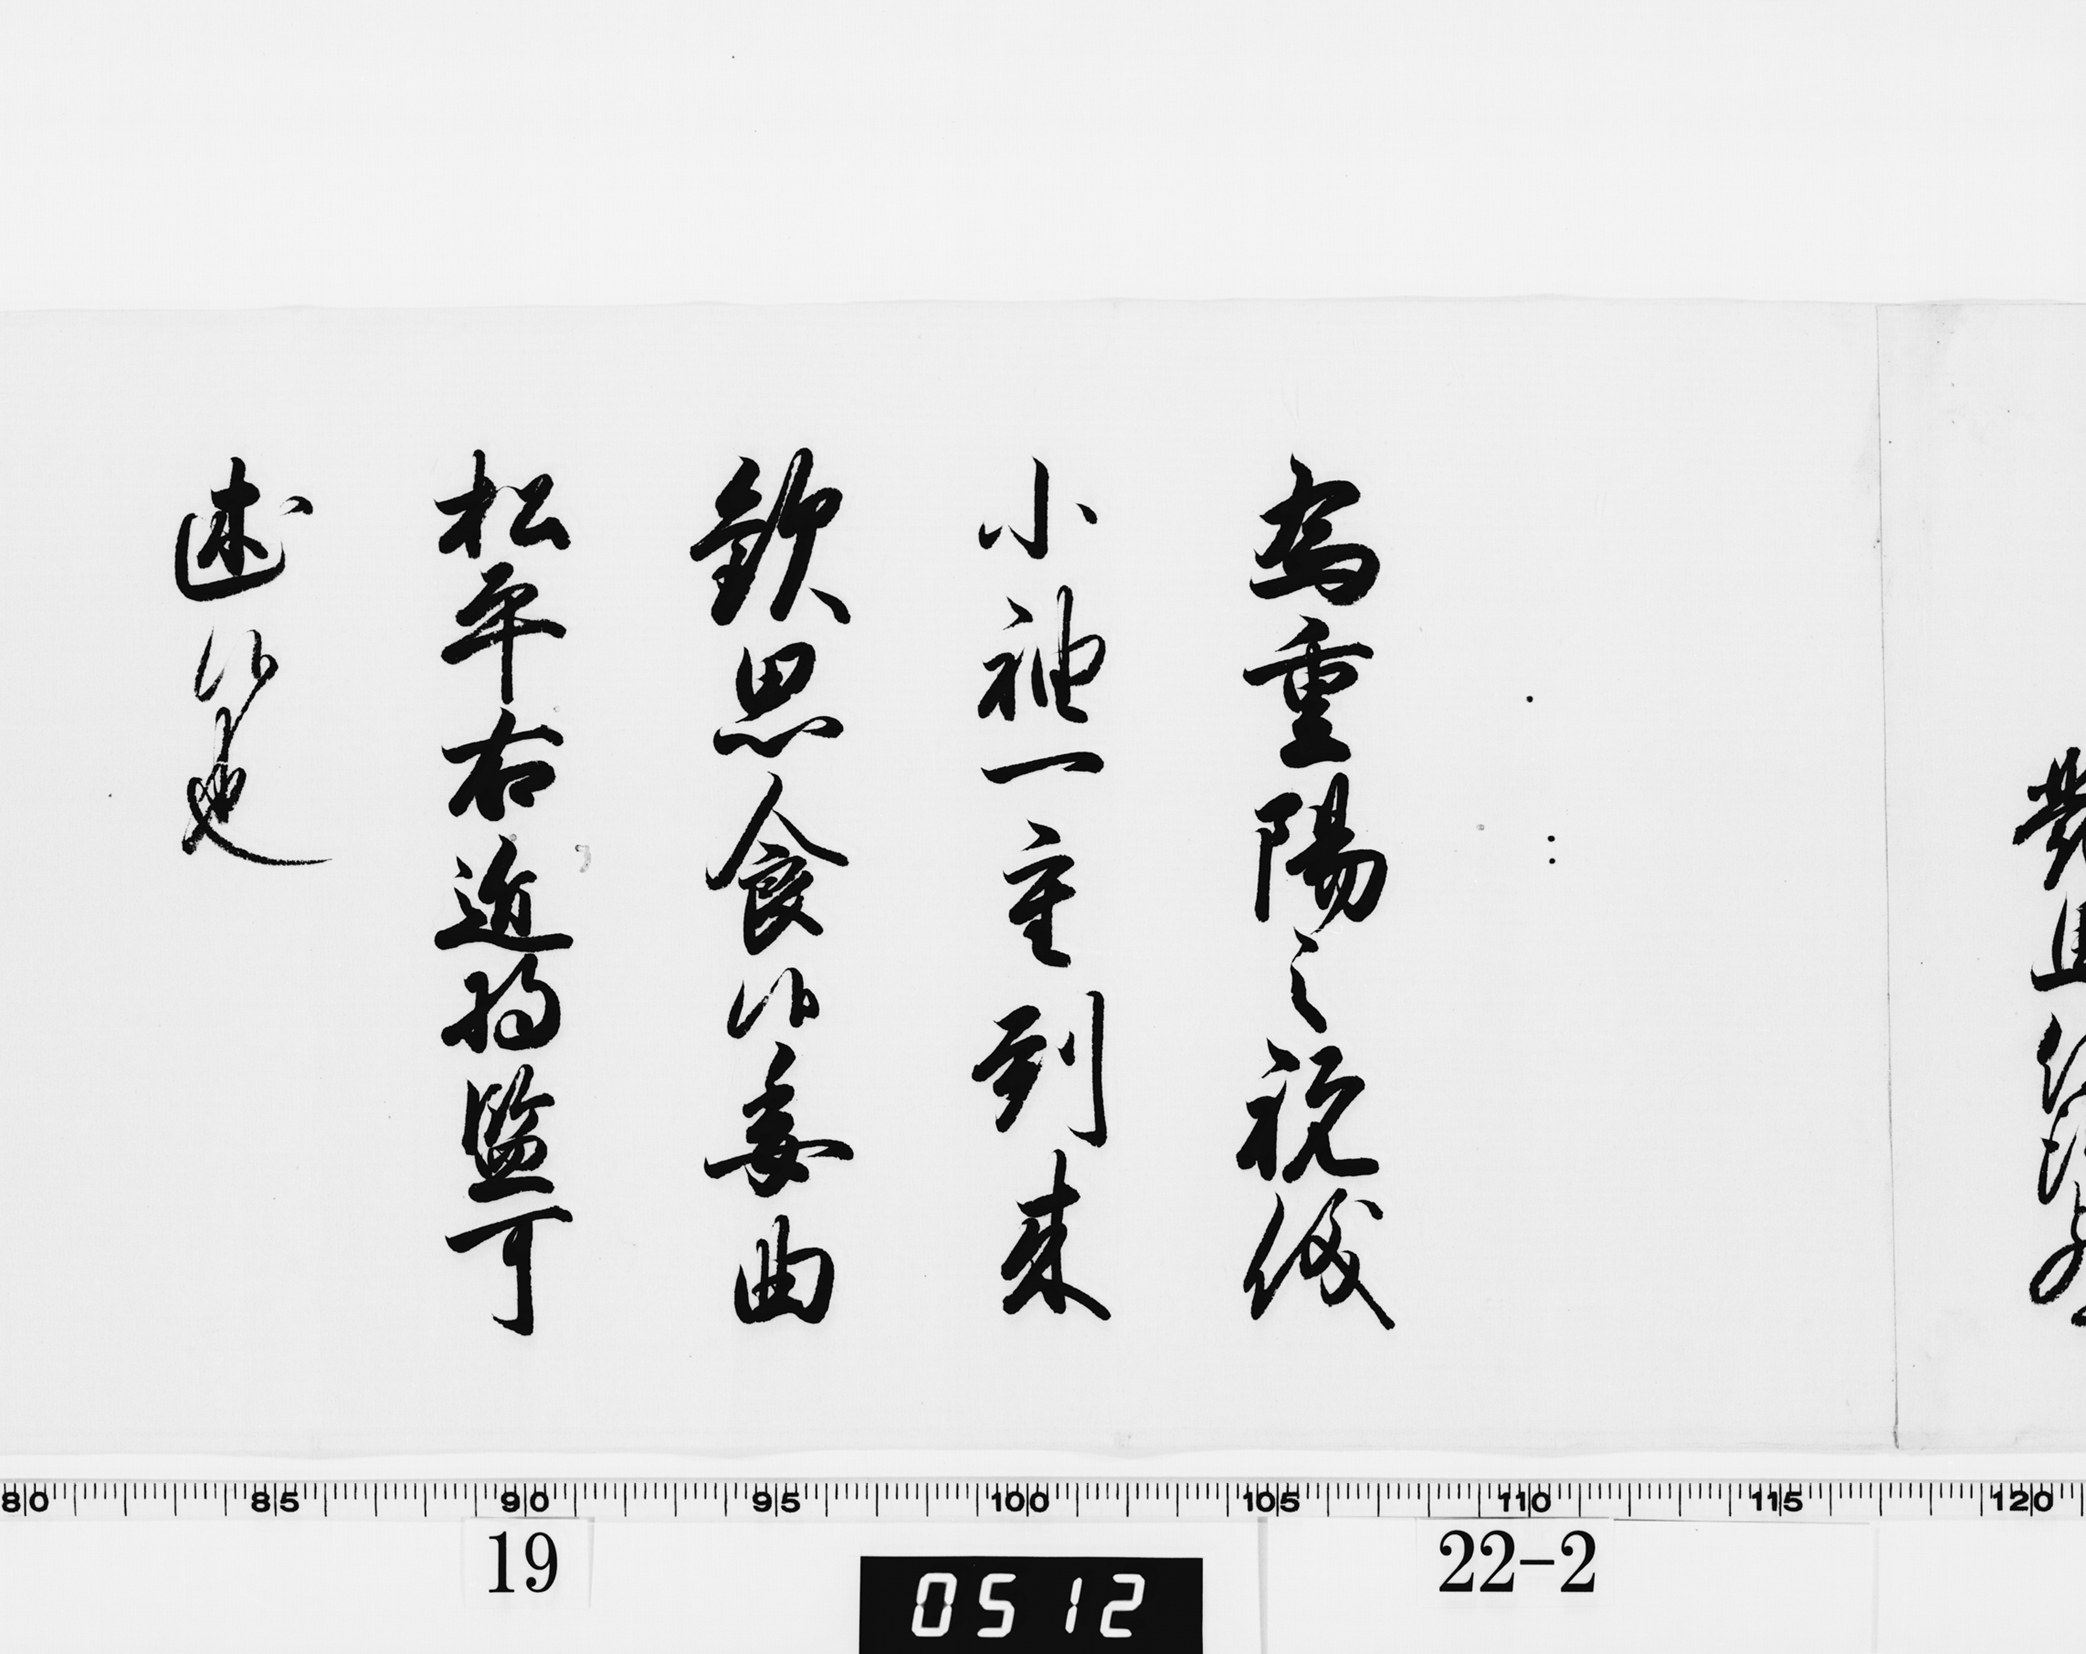 為重陽之祝儀
小袖一重到来
歓思食候委曲
松平右近将監可
述候也
80 85 90 95 100 105 110 115 120
19
0512
22-2